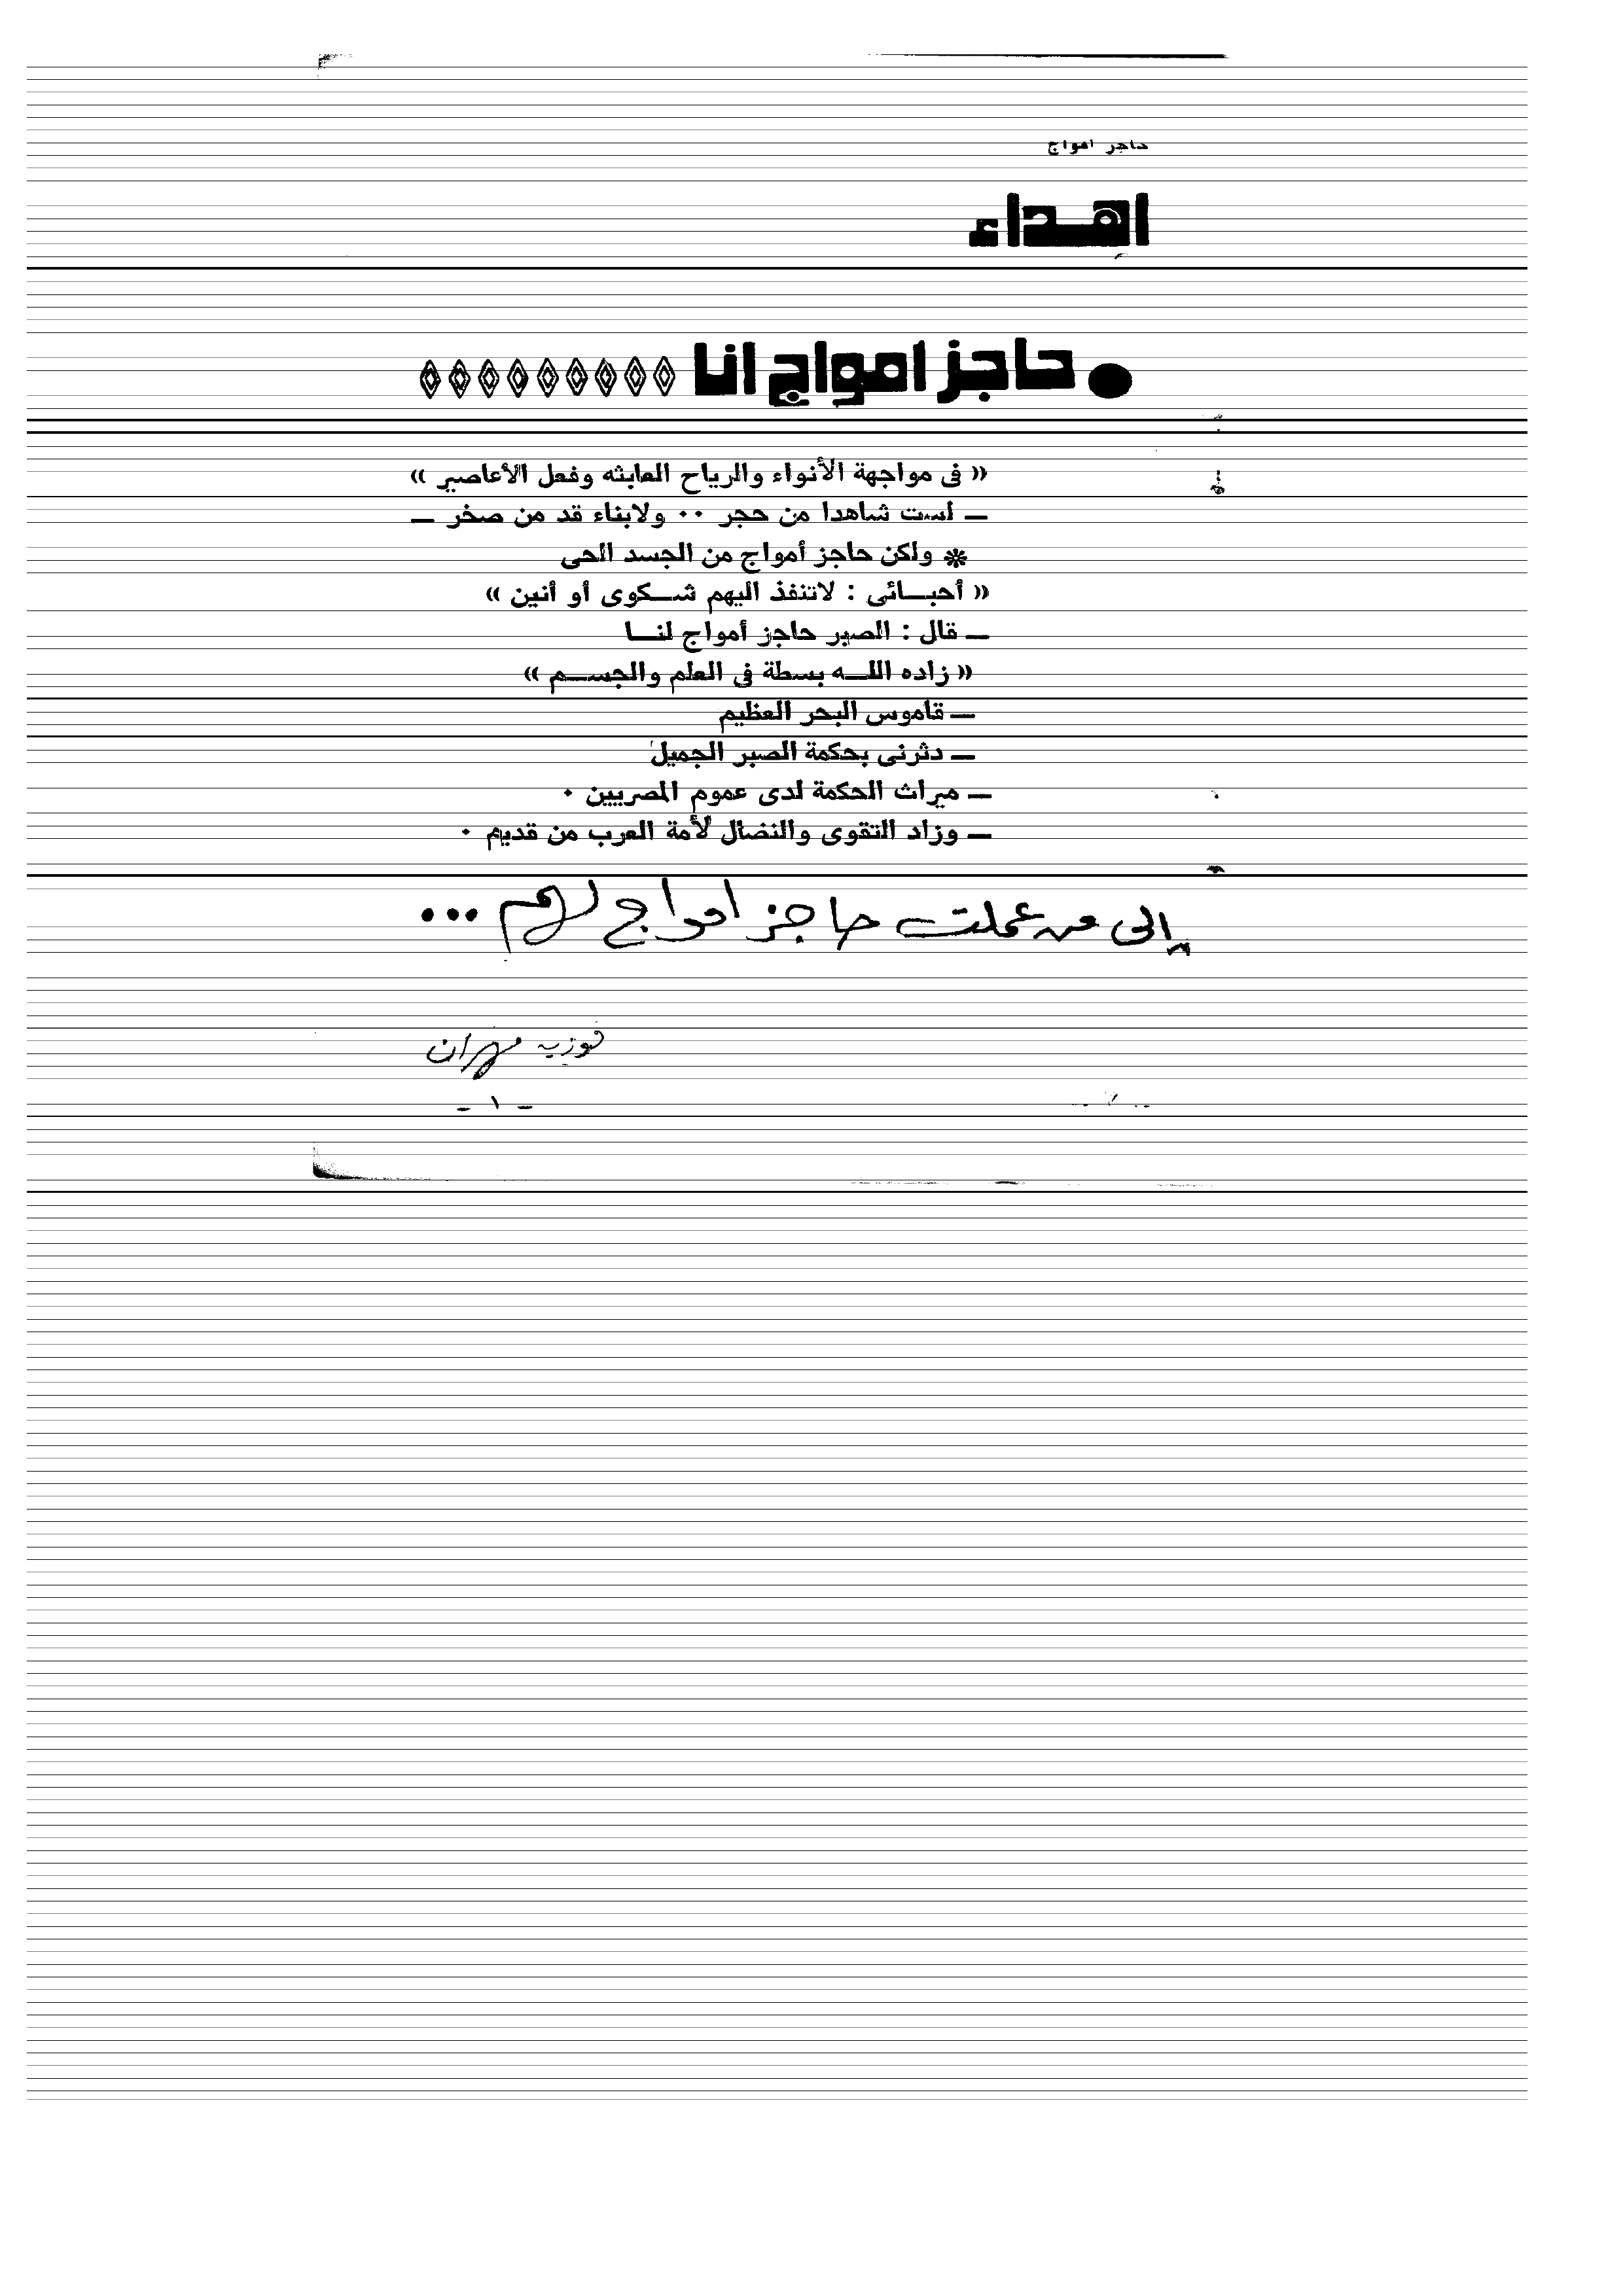 حاجز امواج
اهداء
● حاجز امواج انا ◊◊◊◊◊◊◊◊◊
« فى مواجهة الأنواء والرياح العابثه وفعل الأعاصير »
ــ لست شاهدا من حجر ٠٠ ولابناء قد من صخر ــ
* ولكن حاجز أمواج من الجسد الحى
« أحبـــائى : لاتنفذ اليهم شــكوى أو أنين »
ــ قال : الصبر حاجز أمواج لنــا
« زاده اللــه بسطة فى العلم والجســم »
ــ قاموس البحر العظيم
ــ دثرنى بحكمة الصبر الجميل
ــ ميراث الحكمة لدى عموم المصريين ٠
ــ وزاد التقوى والنضال لأمة العرب من قديم ٠
إلى من عملت حاجز امواج لهم ...
فوزيه مهران
- ١ -